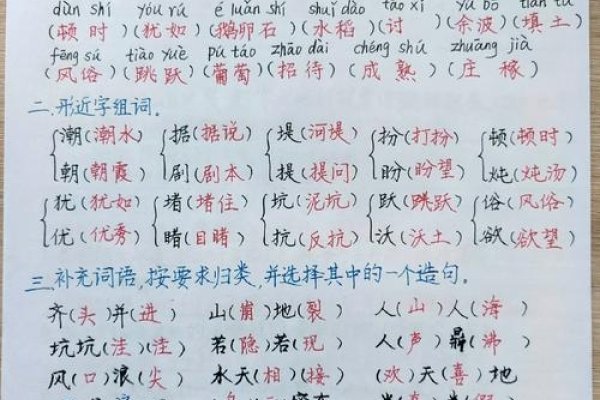 dùn shí yóu rú é luǎn shí shuǐ dào tǎo xǐ yú bō tián tǔ
(顿时)(犹如)(鹅卵石)(水稻)(讨 )(余波)(填土)
fēng sú tiào yuè pú táo zhāo dài chéng shú zhuāng jià
(风俗)(跳跃)(葡萄)(招待)(成熟)(庄稼)
二.形近字组词。
潮(潮水) 据(据说) 堤(河堤) 扮(打扮) 顿(顿时)
朝(朝霞) 剧(剧本) 提(提问) 盼(盼望) 炖(炖汤)
犹(犹如) 堵(堵住) 坑(泥坑) 跃(跳跃) 俗(风俗)
优(优秀) 睹(目睹) 抗(反抗) 沃(沃土) 欲(欲望)
三.补充词语,按要求归类,并选择其中的一个造句。
齐(头)并(进) 山(崩)地(裂) 人(山)人(海)
坑坑(洼)(洼) 若(隐)若(现) 人(声)鼎(沸)
风(口)浪(尖) 水天(相)(接) (欢)天(喜)地